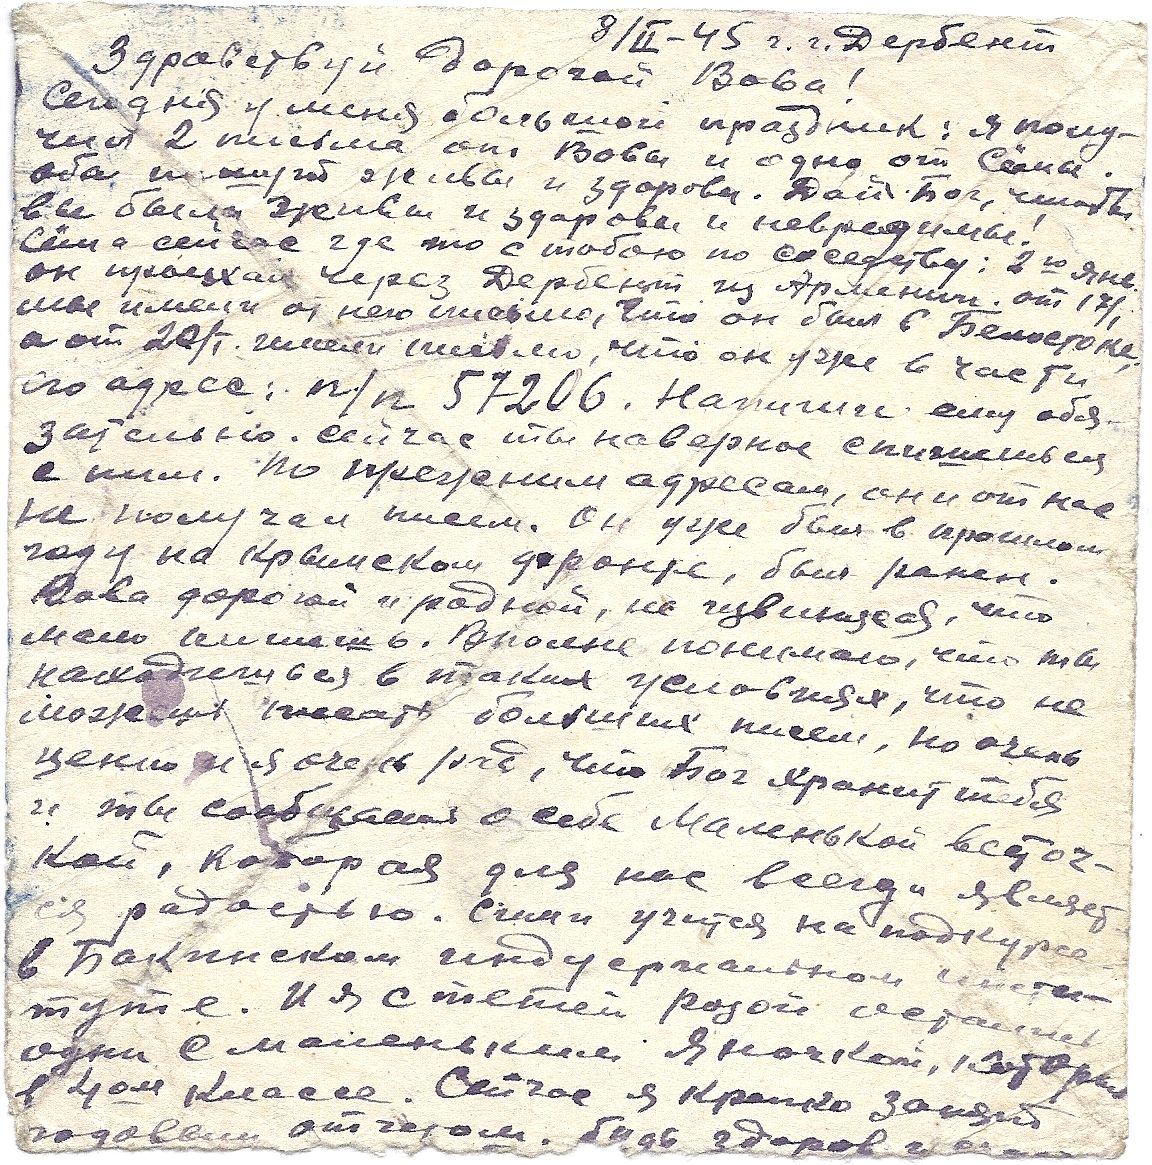 8/II-45 г. г. Дербент
Здравствуй Дорогой Вова!
Сегодня у меня большой праздник: я полу-
чил 2 письма от Вовы и одно от Сёмы.
оба пишут живы и здоровы. Дай Бог, чтобы
вы были живы и здоровы и невредимы!
Сёма сейчас где то с тобою по соседству: 2го янв.
он проехал через Дербент из Армении. от 17/I
мы имели от него письмо, что он был в Белоострове,
а от 20/I. имели письмо, что он уже в части
по адрес: п/п 57206. Напиши ему обя-
зательно. Сейчас ты наверное спишешься
с ним. По прежним адресам, он и от нас
не получал писем. Он уже был в прошлом
году на Крымском фронте, был ранен.
Вова дорогой и родной, не извиняйся, что
мало пишешь. Вполне понимаю, что ты
находишься в таких условиях, что не
можешь писать больших писем, но очень
ценно и я очень рад, что Бог хранит тебя
и ты сообщаешь о себе Маленькой весточ-
кой, которая для нас всегда являет-
ся радостью. Сима учится на подкурсе
в Бакинском индустриальном инсти-
туте. И я с тетей Розой остались
одни с маленьким Яночкой, который
в 4ом классе. Сейчас я крепко занят
годовым отчетом. Будь здоров и